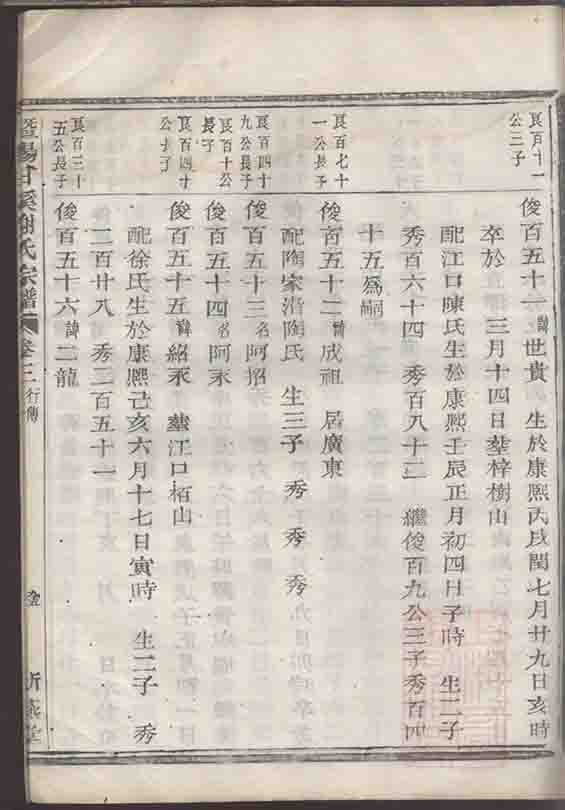 良百十一公三子
俊百五十一諱世貴 生於康熙丙戌閏七月廿九日亥時
卒於 三月十四日塟梓樹山
配江口陳氏生於康熙壬辰正月初四日子時 生二子
秀百六十四 秀百八十二 繼俊百九公三子秀百四
十五爲嗣
良百七十一公長子
俊百五十二諱成祖 居廣東
配陶家沿陶氏 生三子 秀 秀 秀
良百四十九公長子
俊百五十三名阿招
良百十公長子
俊百五十四名阿永
良百四十公長子
俊百五十五諱紹永 塟江口栢山
配徐氏生於康熙己亥六月十七日寅時 生二子 秀
二百廿八 秀二百五十一
良百三十五公長子
俊百五十六諱二龍
暨陽甘溪謝氏宗譜 卷三 行傳